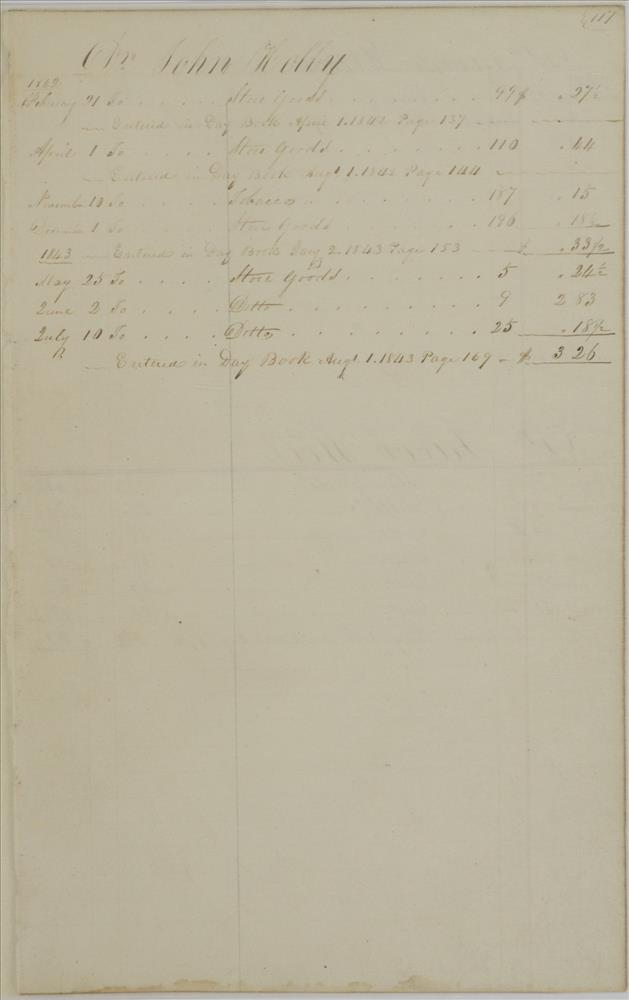 117
Dr. John Holly
1842
February 21 To . . . . . Store Goods . . . . . . . . . 99 $ . 27½
— Entered in Day Book April 1. 1842 Page 137 —
April 1 To . . . . . Store Goods . . . . . . . . 110 . 44
— Entered in Day Book Augt 1. 1842 Page 144 —
November 10 To . . . . . Tobacco . . . . . . . . . 187 . 15
December 1 To . . . . . Store Goods . . . . . . . . 196 . 18½
1843 — Entered in Day Book Jany 2. 1843 Page 153 — $ . 33½
May 25 To . . . . Store Goods . . . . . . . 5 . 24½
June 2 To . . . . Ditto . . . . . . . . . 9 2 83
July 10 To . . . . Ditto . . . . . . . . . 25 . 18½
— Entered in Day Book Augt 1. 1843 Page 169 — $ 3 26